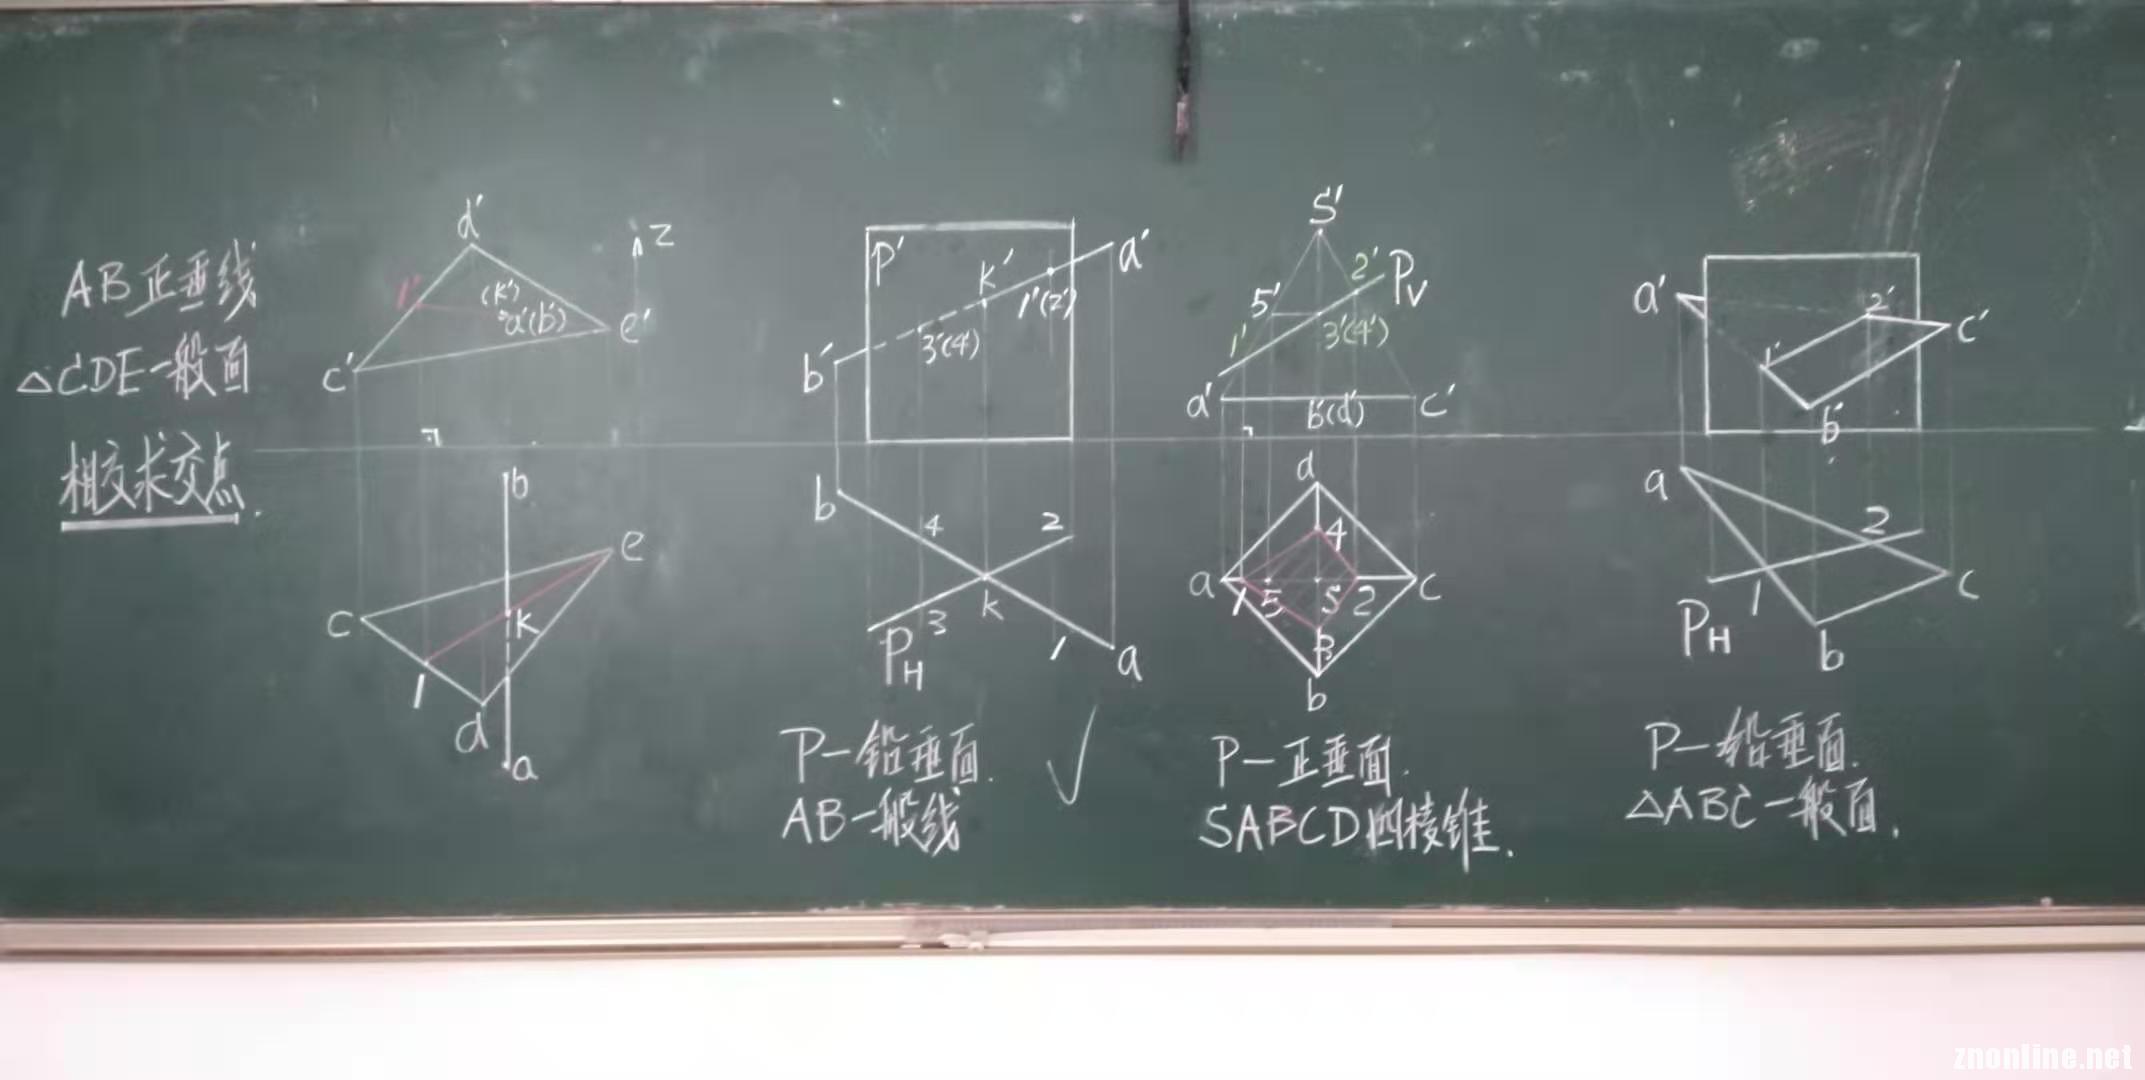 AB正垂线
△CDE一般面
相交求交点.
d'
z
1'
(k')
a'(b')
e'
c'
b
e
c
k
1
d
a
P'
a'
k'
1'(2')
3'(4')
b'
b
4
2
3
k
PH
1
a
P—铅垂面.
AB一般线
S'
2'
PV
5'
1'
3'(4')
a'
b'(d')
c'
d
4
a
1
5
S
2
c
3
b
P—正垂面.
SABCD四棱锥.
a'
2'
c'
1'
b'
a
2
1
c
PH
b
P—铅垂面.
△ABC一般面.
znonline.net